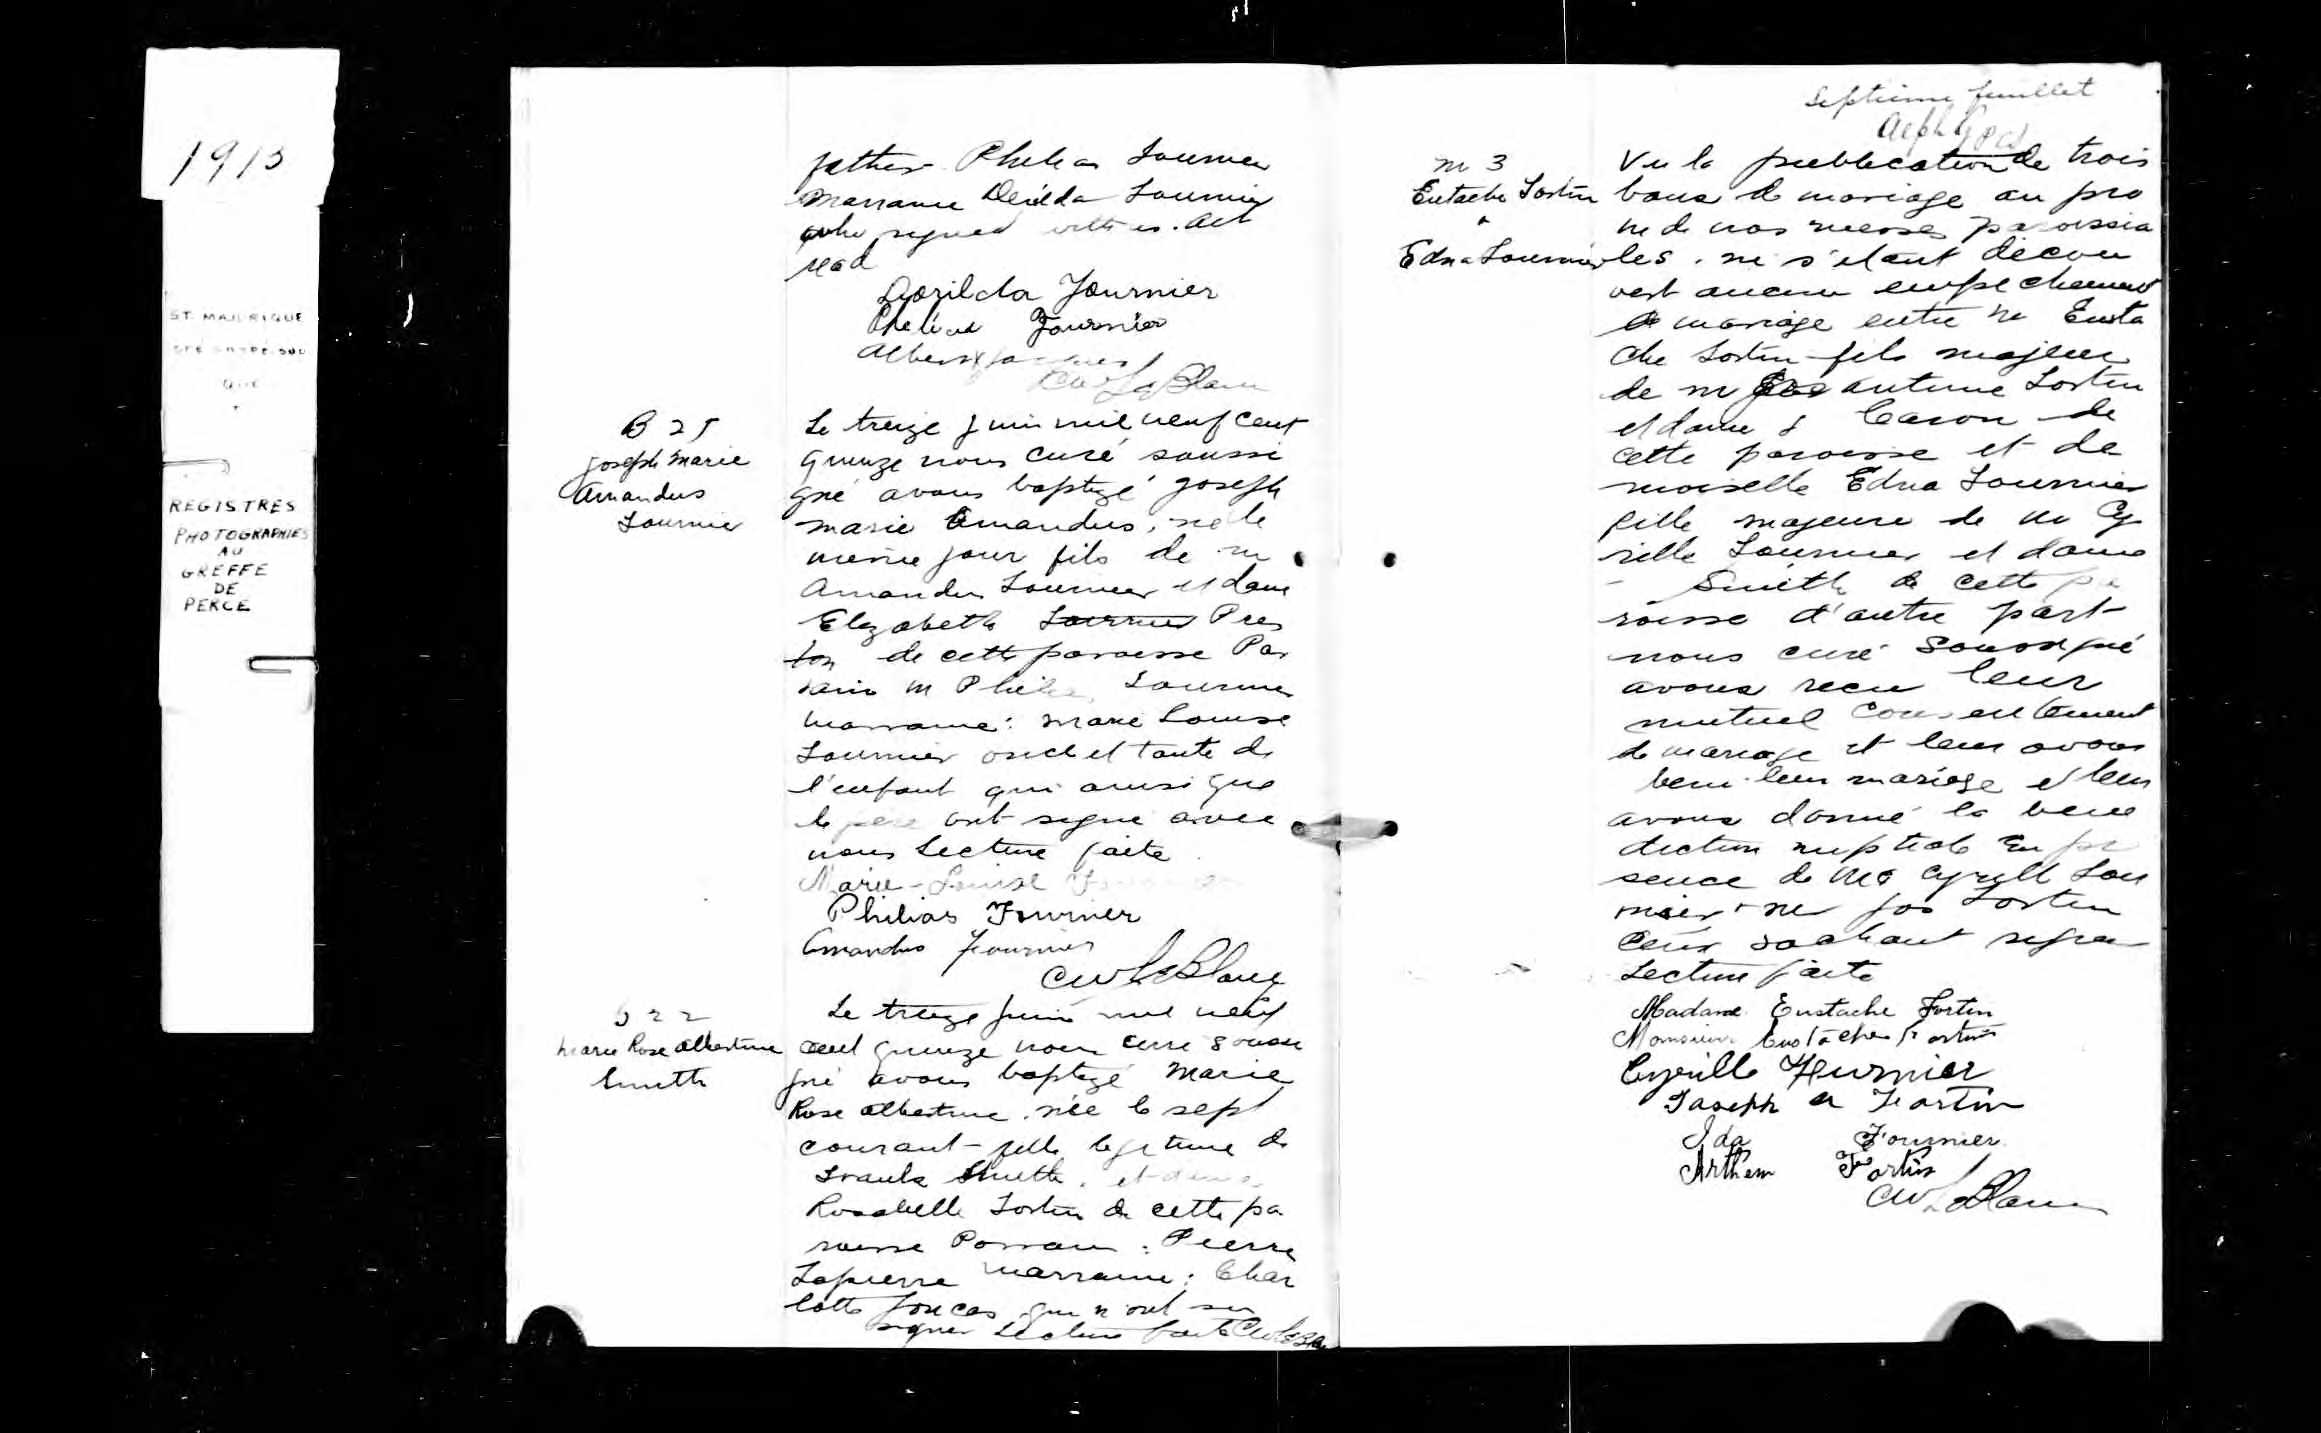 1913
ST. MAJORIQUE
QUE
REGISTRES
PHOTOGRAPHIES
AU
GREFFE
DE
PERCE
father Phileas Fournier
Marraine Dorilda Fournier
who signed with us. Act
read
Dorilda Fournier
Phelias Fournier
Albert
CW LeBlanc
B 25
Joseph Marie
Amandus
Fournier
Le treize juin mil neuf cent
quinze nous curé soussi
gné avons baptizé Joseph
Marie Amandus, né le
meme jour fils de m
Amandus Fournier et dame
Elizabeth Fournier Pres
ton de cette paroisse Par
rain M Philias Fournier
marraine: Marie Louise
Fournier oncle et tante de
l'enfant qui ainsi que
le père ont signé avec
nous Lecture faite.
Marie-Louise Fournier
Philias Fournier
Amandus Fournier
CW LeBlanc
Marie Rose Albertine
Smith
Le treize juin mil neuf
cent quinze nous curé soussi
gné avons baptizé Marie
Rose Albertine, née le sept
courant fille legitime de
Smith, et dame
Rosabelle Fortin de cette pa
roisse Parrain: Pierre
Lapierre Marraine: Char
lotte Joncas qui n'ont su
signer Lecture faite CW LeBla
Septieme feuillet
m 3
Eutache Fortin
&
Edna Fournier
Vu la publication de trois
bans de mariage au pro
ne de nos messes paroissia
les, ne s'etant decou
vert aucun empechement
de mariage entre m Eusta
che Fortin fils majeur
de m Antoine Fortin
et dame Caron de
cette paroisse et de
moiselle Edna Fournier
fille majeure de m Cy
rille Fournier et dame
- Smith de cette pa
roisse d'autre part
nous curé soussigné
avons recu leur
mutuel consentement
de mariage et leur avons
beni leur mariage et leur
avons donné la bene
diction nuptiale En pre
sence de Mr Cyrill Four
nier & mr Jos Fortin
Ceux sachant signer
Lecture faite
Madame Eustache Fortin
Monsieur Eustache Fortin
Cyrille Fournier
Joseph A Fortin
Ida Fournier
Arthem Fortin
CW LeBlanc